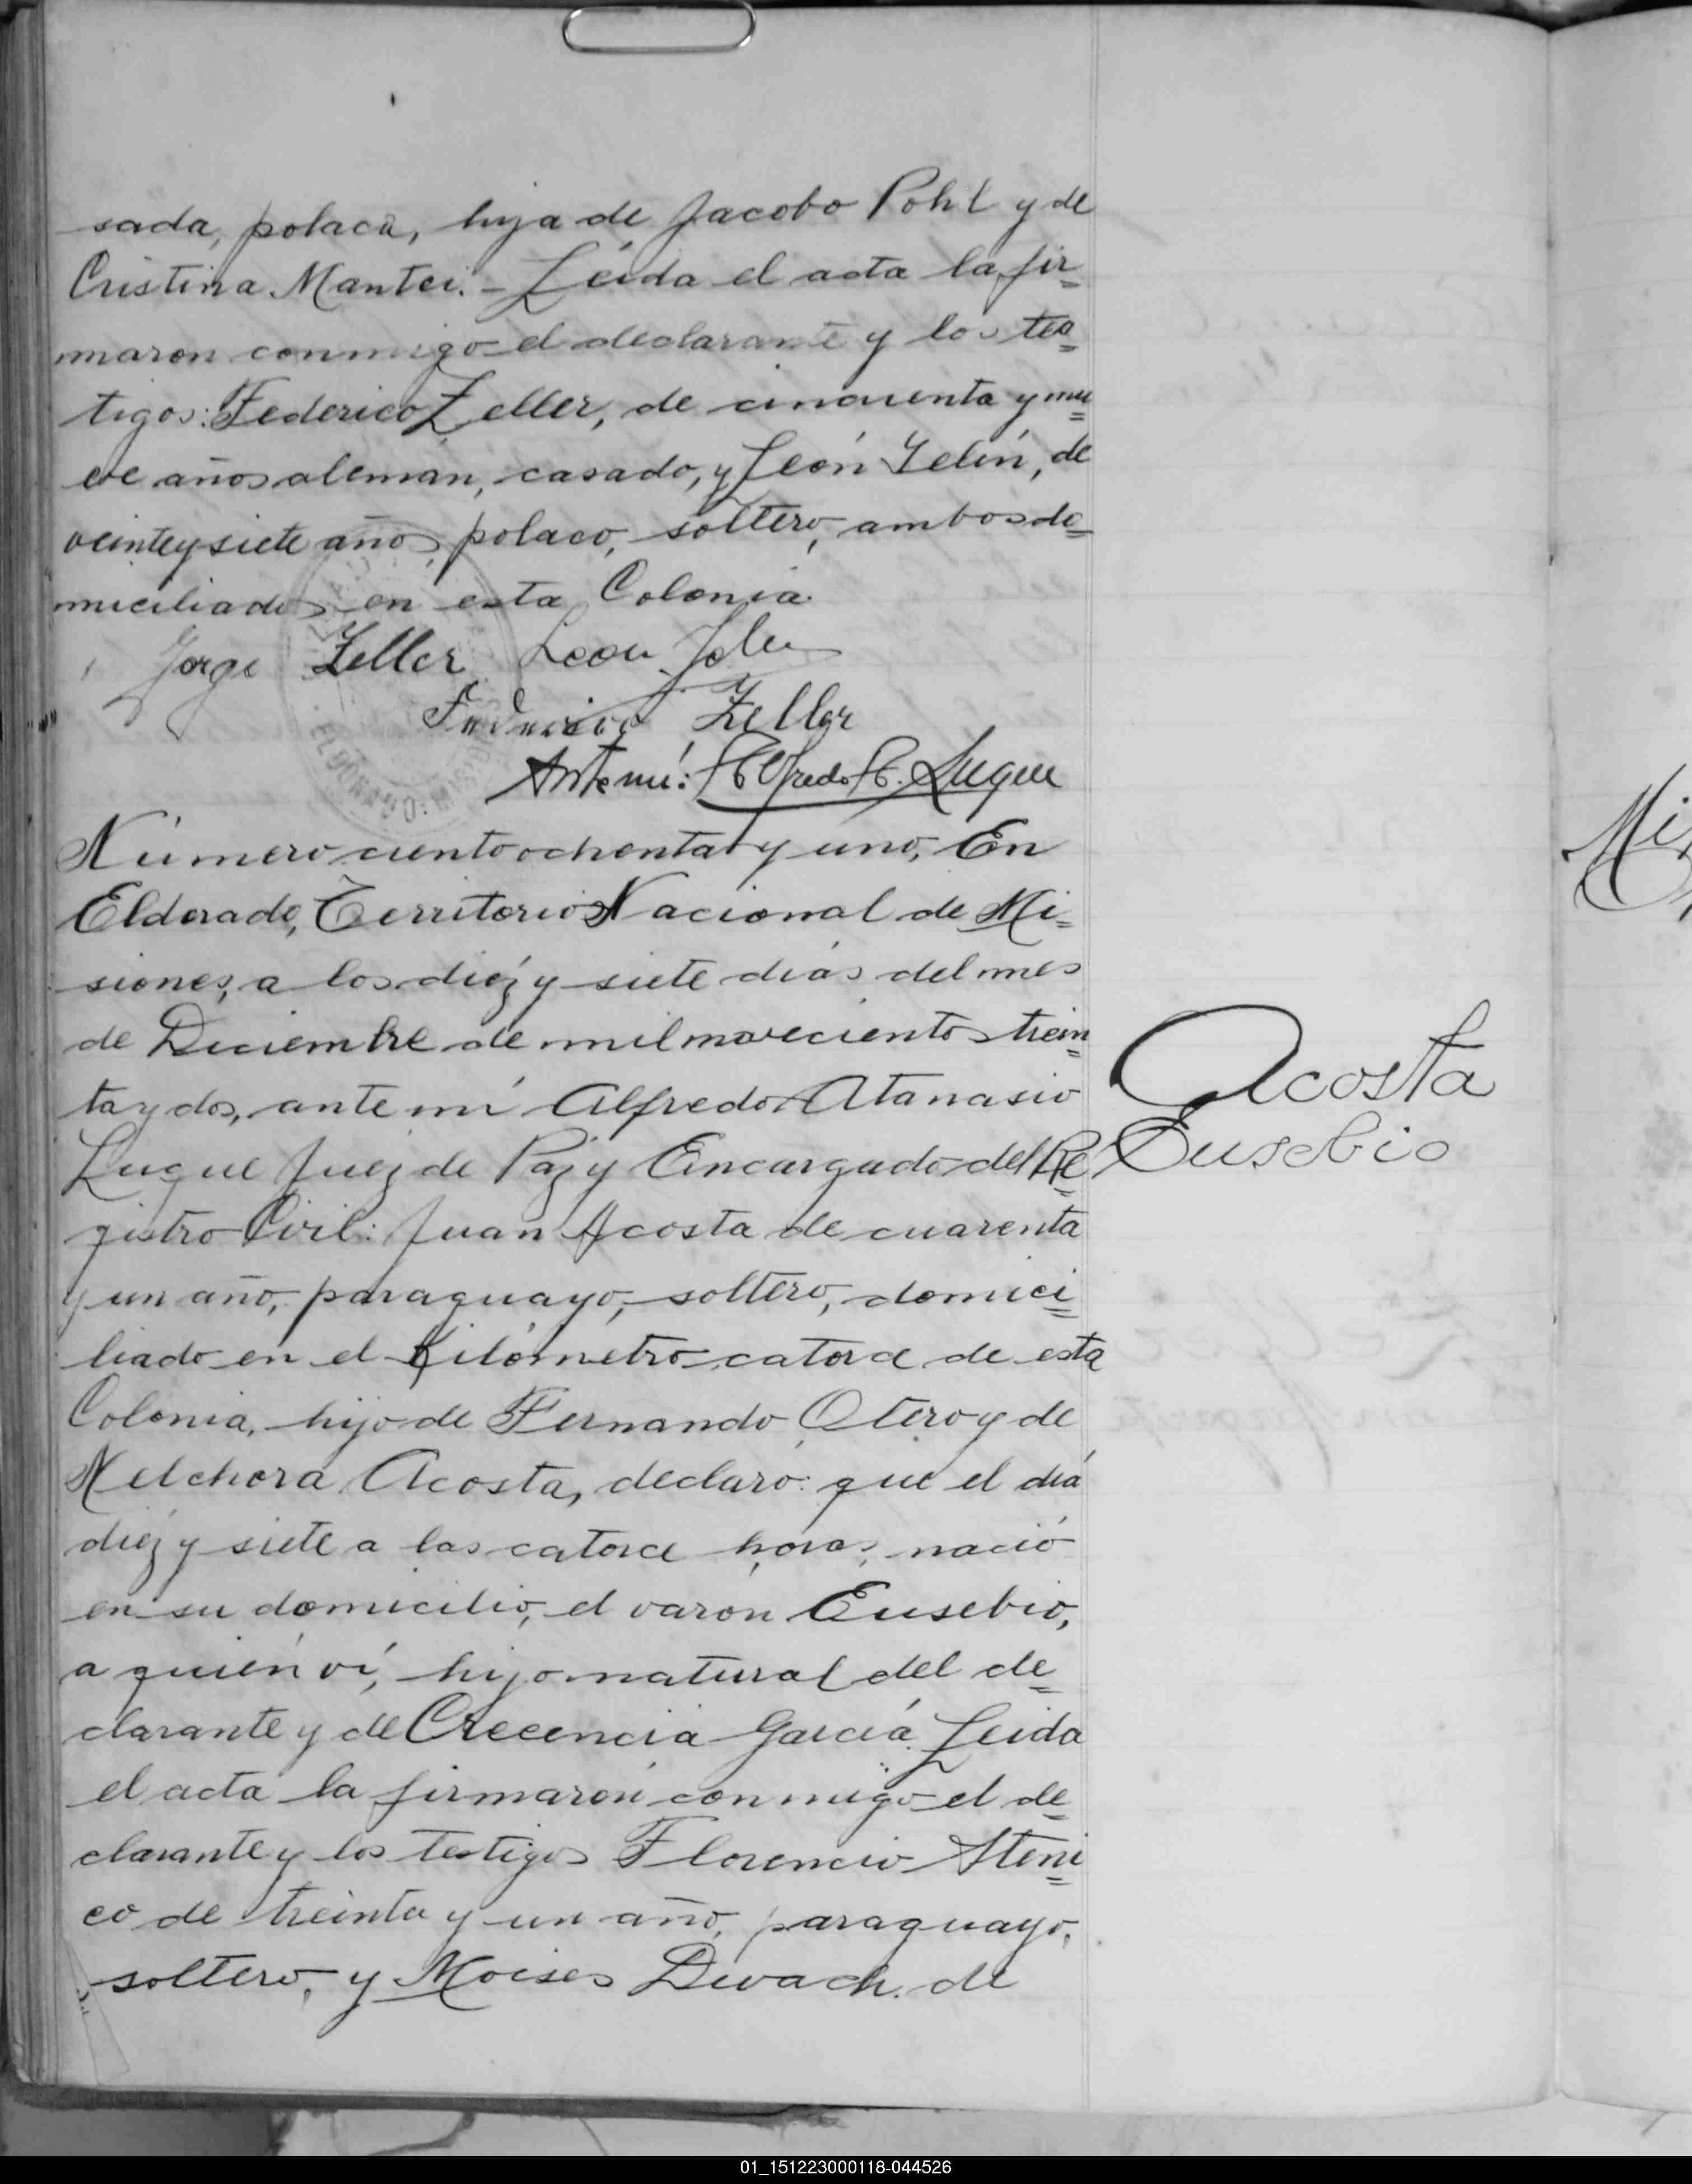 sada, polaca, hija de Jacobo Pohl y de
Cristina Mantei. - Leída el acta la fir=
maron conmigo el declarante y los tes=
tigos: Federico Zeller, de cincuenta y nu=
eve años aleman, casado, y León Zelin, de
veinte y siete años, polaco, soltero, ambos do=
miciliados en esta Colonia.
Jorge Zeller Leon
Federico Zeller
Ante mí: Alfredo A. Luque
Número ciento ochenta y uno, En
Eldorado, Territorio Nacional de Mi=
siones, a los diéz y siete días del mes
de Diciembre de mil novecientos trein=
ta y dos, ante mí Alfredo Atanasio
Luque Juez de Paz y Encargado del Re=
gistro Civil: Juan Acosta de cuarenta
y un año, paraguayo, soltero, domici=
liado en el Kilómetro catorce de esta
Colonia, hijo de Fernando Otero y de
Melchora Acosta, declaro: que el día
diéz y siete a las catorce horas, nació
en su domicilio, el varón Eusebio,
a quién ví, hijo natural del de=
clarante y de Crecencia García. Leida
el acta la firmarón conmigo el de=
clarante y los testigos Florencio Ateni=
co de treinta y un año, paraguayo,
soltero, y Moises Dwach. de
Acosta
Eusebio
ELDORADO: MISIONES
01_151223000118-044526